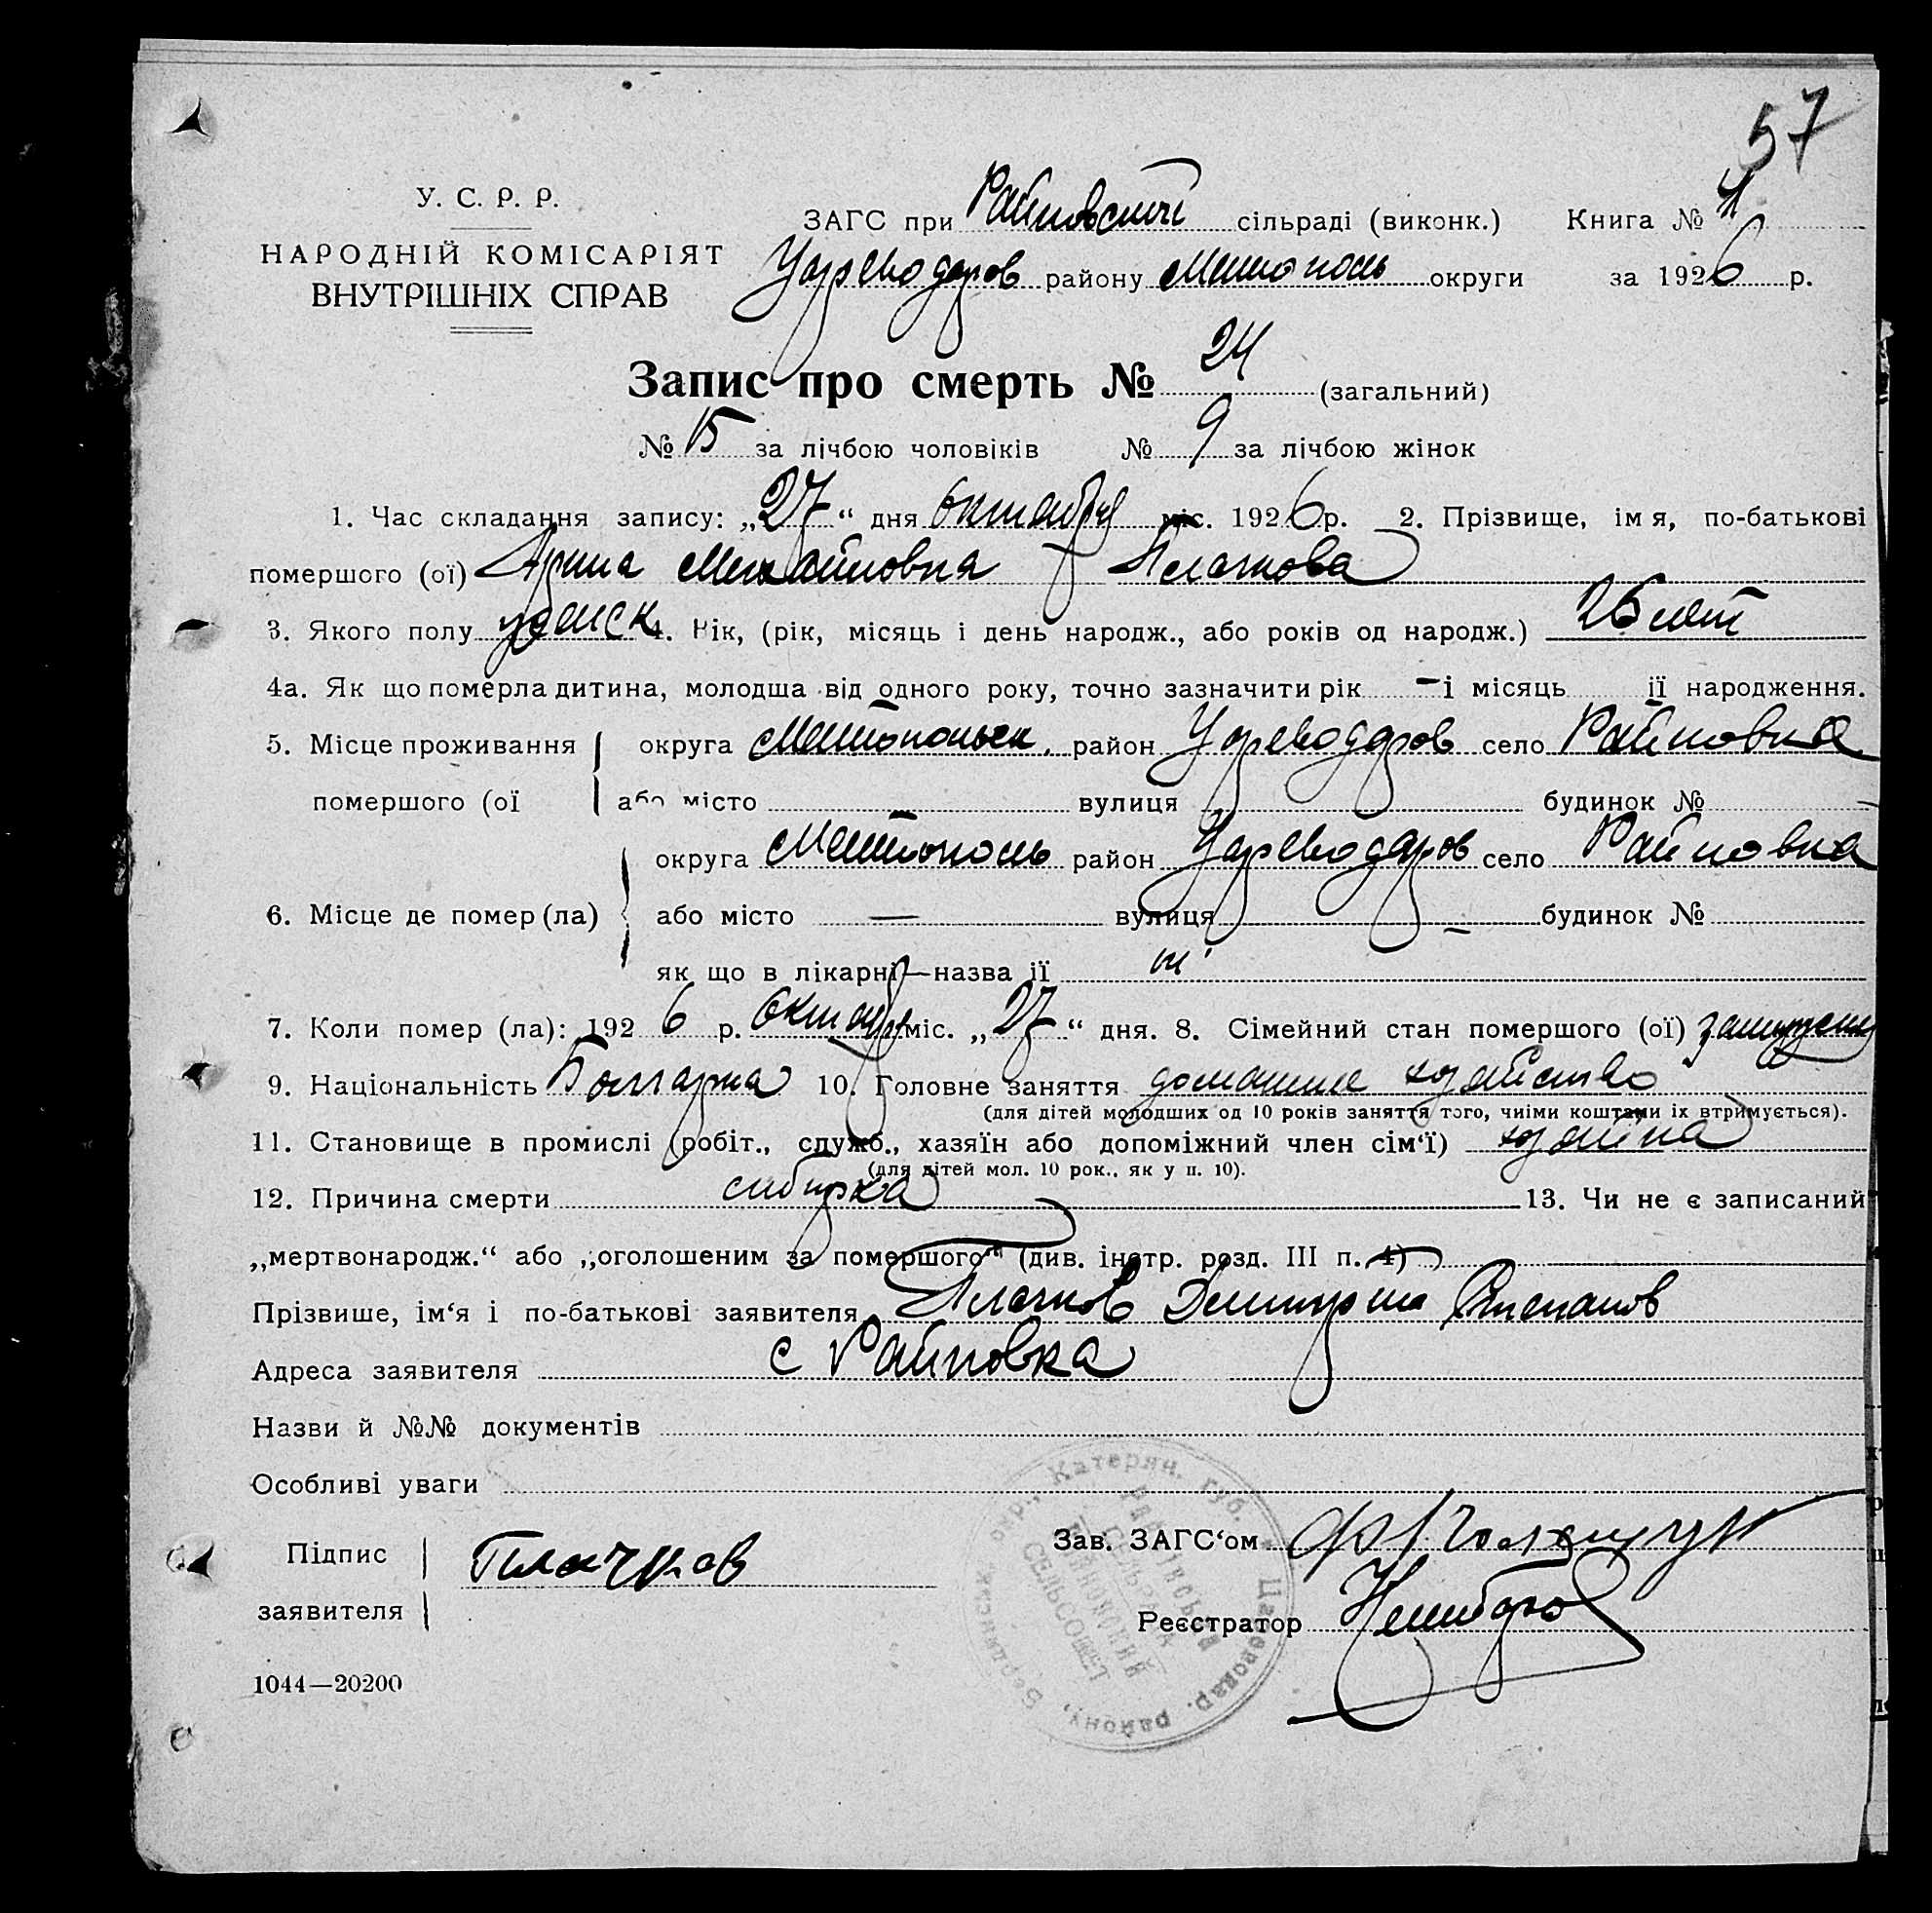 57
У. С. Р. Р.
НАРОДНІЙ КОМІСАРІЯТ
ВНУТРІШНІХ СПРАВ
ЗАГС при Райновській сільраді (виконк.) Книга №
Цареводаров району Мелитополь округи за 1926 р.
Запис про смерть № 24 (загальний)
№ 15 за лічбою чоловіків № 9 за лічбою жінок
1. Час складання запису: „27“ дня Октября міс. 1926 р. 2. Прізвище, імя, по-батькові
помершого (ої) Арина Михайловна Плачкова
3. Якого полу женск 4. Рік, (рік, місяць і день народж., або років од народж.) 26 лет
4а. Як що померла дитина, молодша від одного року, точно зазначити рік — і місяць її народження.
5. Місце проживання округа Мелитопольск. район Цареводаров село Райновка
помершого (ої або місто вулиця будинок №
округа Мелитополь район Цареводаров село Райновка
6. Місце де помер (ла) або місто — вулиця — будинок №
як що в лікарні—назва її
7. Коли помер (ла): 1926 р. Октября міс. „27“ дня. 8. Сімейний стан помершого (ої) замужем
9. Національність Болгарка 10. Головне заняття домашнее хозяйство
(для дітей молодших од 10 років заняття того, чиїми коштами їх втримується).
11. Становище в промислі (робіт., служб., хазяїн або допоміжний член сім‘ї) хозяйка
(для дітей мол. 10 рок., як у п. 10).
12. Причина смерти сибирка 13. Чи не є записаний
„мертвонародж.“ або „оголошеним за помершого“ (див. інстр. розд. III п. 4)
Прізвише, ім‘я і по-батькові заявителя Плачков Димитрий Степанов
Адреса заявителя с Райновка
Назви й №№ документів
Особливі уваги
Підпис
заявителя
Плачков
Зав. ЗАГС‘ом
Реєстратор
Бердянськ. окр., Катерян. губ. * Цареводар. району,
Райнівська
Сільрада
Райновский
СЕЛЬСОВЕТ
1044—20200